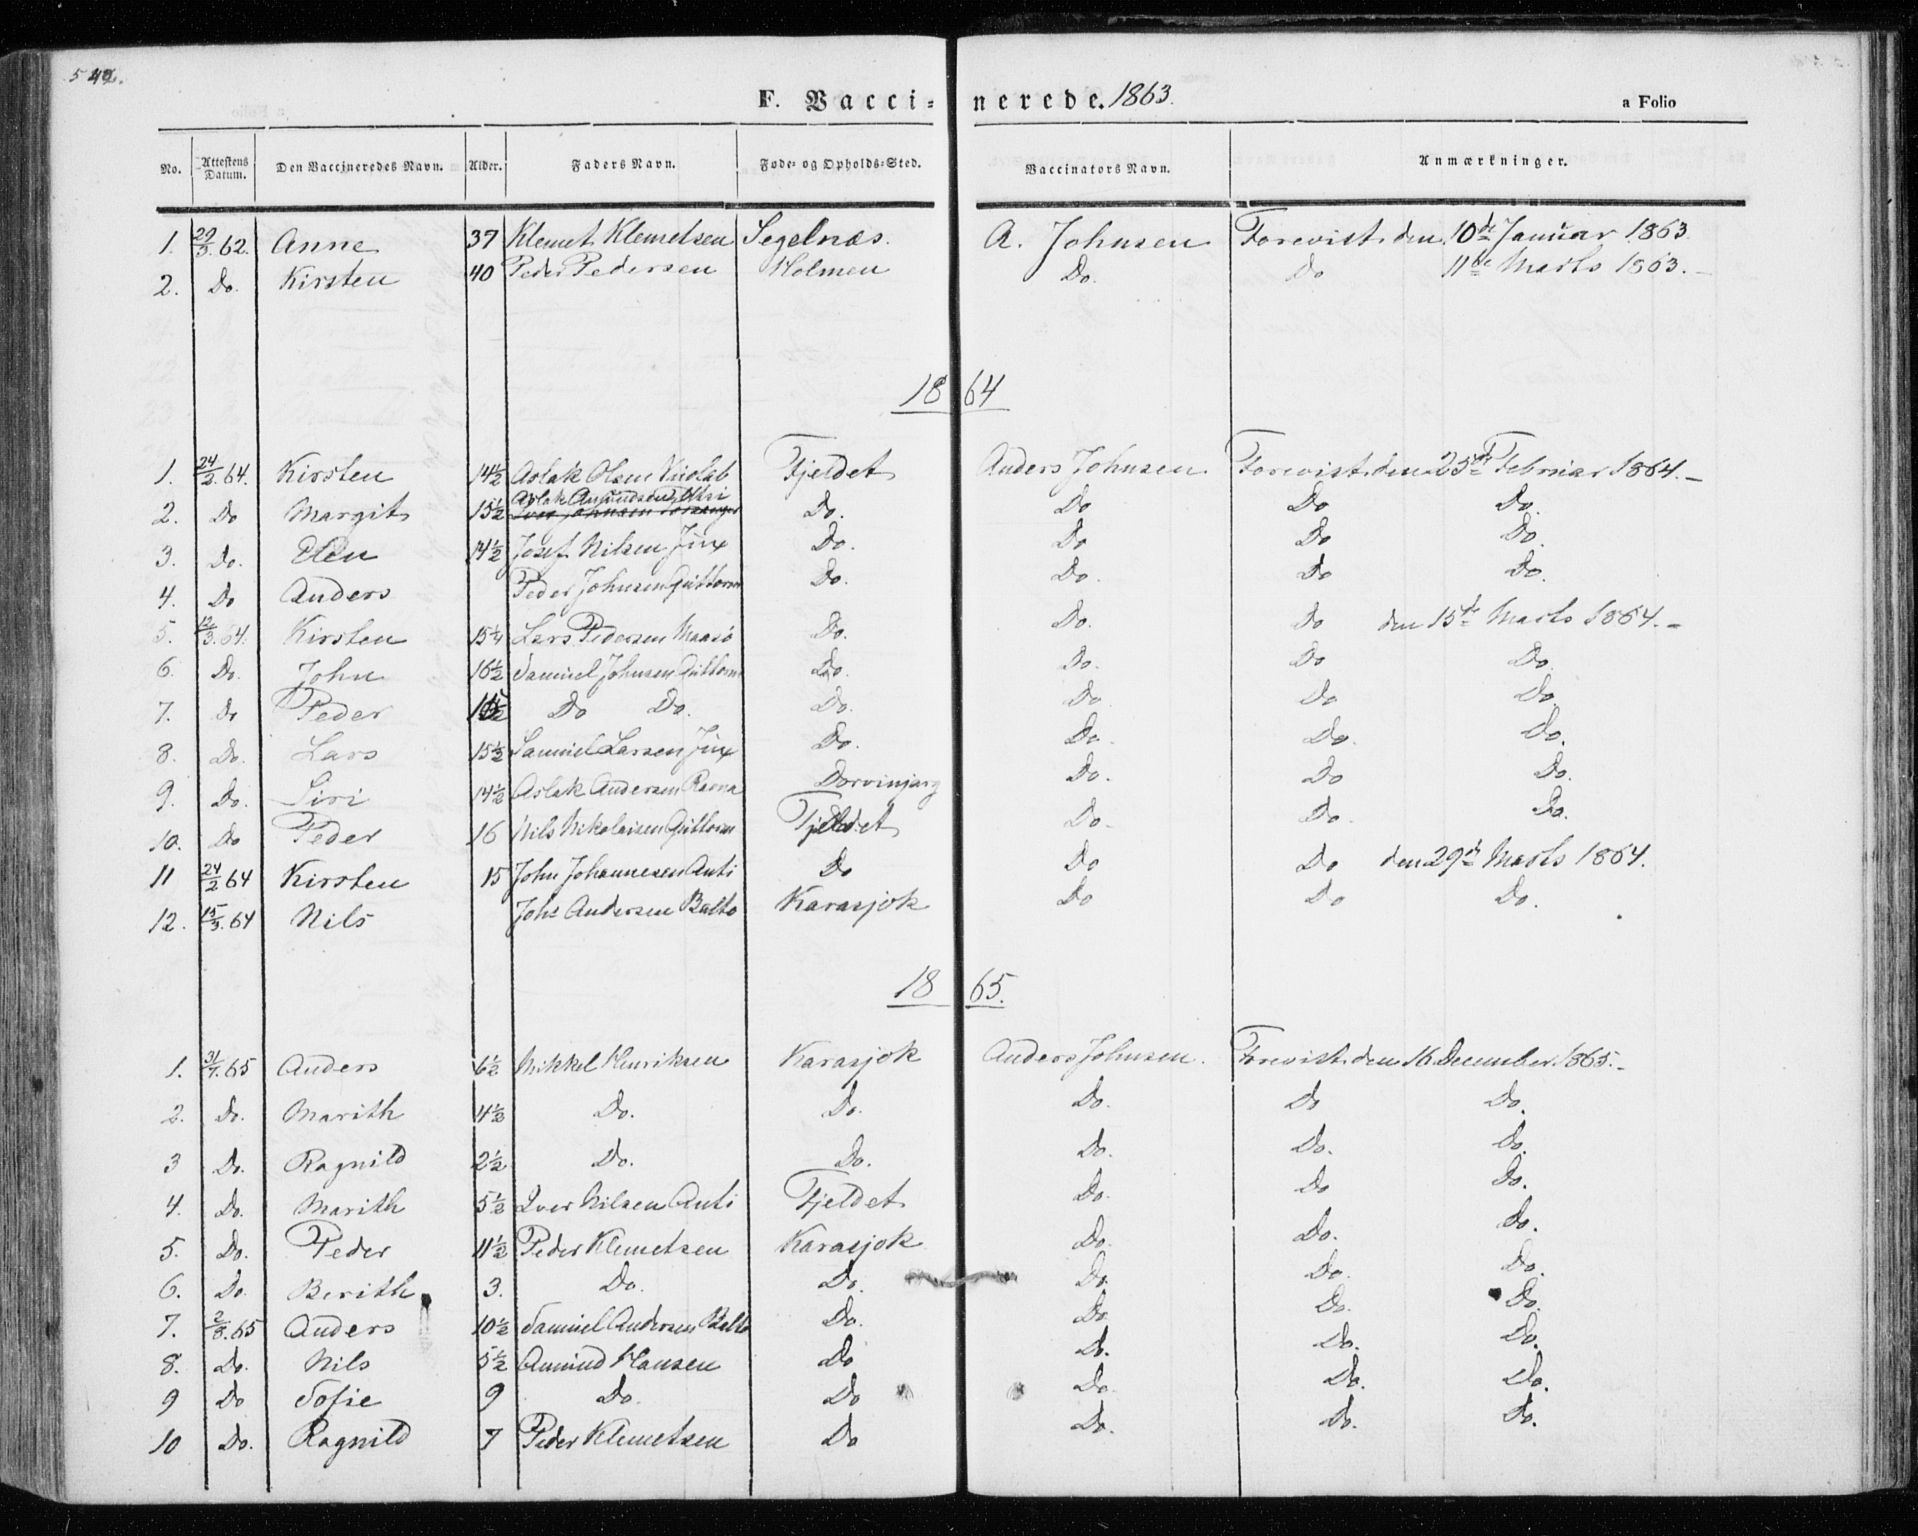 542.
F. Vaccinerede. 1863.
a Folio
No. Attestens Datum. Den Vaccineredes Navn. Alder. Faders Navn. Føde- og Opholds-Sted. Vaccinators Navn. Anmærkninger.
1. 29/3.62. Anne 37 Klemet Klemetsen Segelnæs. A. Johnsen Forevist den 10de Januar 1863.
2. Do. Kirsten 40 Peder Pedersen Holmen Do. Do 11de Marts 1863.-
1864
1. 24/2.64. Kirsten 14½ Aslak Olsen Fjeldet Anders Johnsen. Forevist den 25de Februar 1864.-
2. Do Margit 15½ Aslak Amundsen Utsi Do. Do Do Do.
3. Do. Elen 14½ Josef Nilsen Jux Do. Do Do Do.
4. Do Anders Peder Johnsen Guttorm Do. Do. Do Do.
5. 12/3.64. Kirsten 15¼ Lars Pedersen Maasø Do. Do. Do den 15de Marts 1864.-
6. Do. John 16½ Samuel Johnsen Guttorm Do. Do. Do Do.
7. Do Peder Do Do. Do. Do Do Do.
8. Do. Lars 15½ Samuel Larsen Jux Do. Do. Do. Do.
9. Do. Siri 14½ Aslak Andersen Ravna Dorvinjarg Do. Do Do.
10. Do Peder 16 Nils Nikolaisen Guttorm Fjeldet Do. Do. Do.
11 24/2 64 Kirsten 15 John Johannesen Anti Do Do Do den 29de Marts 1864.
12. 15/3.64 Nils Johs Andersen Balto Karasjok Do Do Do.
1865.
1. 31/7.65 Anders 6½ Mikkel Henriksen Karasjok Anders Johnsen. Forevist den 16 December 1865.-
2. Do. Marith 4½ Do. Do. Do. Do Do.
3 Do. Ragnild 2½ Do. Do. Do. Do. Do.
4. Do. Marith 5½ Iver Nilsen Anti Fjeldet Do. Do Do.
5. Do. Peder 11½ Peder Klemetsen Karasjok Do. Do. Do.
6. Do. Berith 3. Do. Do. Do. Do. Do.
7. 2/8.65 Anders 10½ Samuel Andersen Balto Do. Do Do. Do.
8. Do. Nils 5½ Amund Hansen Do Do. Do. Do.
9 Do Sofie 9 Do. Do Do. Do. Do.
10 Do. Ragnild 7 Peder Klemetsen Do Do. Do. Do.